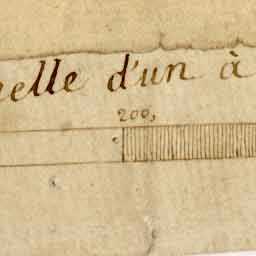 elle d'un à
200,